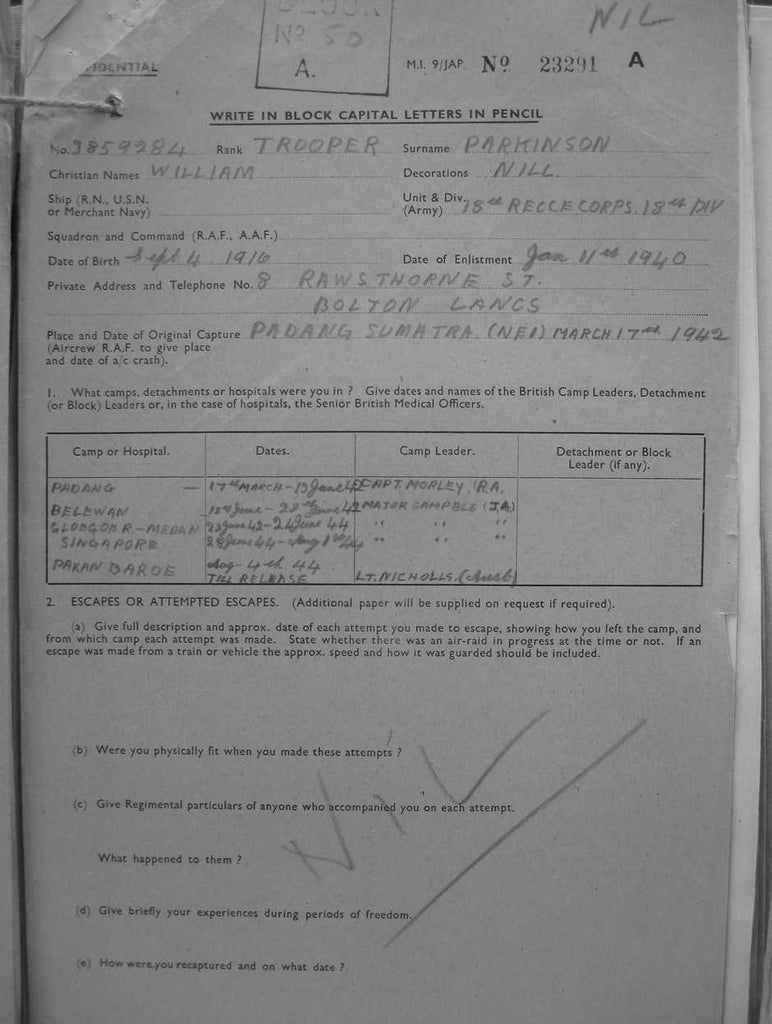 NIL
BLOCK
Nº 50
A.
IDENTIAL
M.I. 9/JAP Nº 23291 A
WRITE IN BLOCK CAPITAL LETTERS IN PENCIL
No. 3859284 Rank TROOPER Surname PARKINSON
Christian Names WILLIAM Decorations NILL.
Ship (R.N., U.S.N. or Merchant Navy) Unit & Div. (Army) 18th RECCE CORPS. 18th DIV
Squadron and Command (R.A.F., A.A.F.)
Date of Birth Sept 4 1916 Date of Enlistment Jan 11th 1940
Private Address and Telephone No. 8 RAWSTHORNE ST.
BOLTON LANCS
Place and Date of Original Capture PADANG SUMATRA. (NEI) MARCH 17th 1942
(Aircrew R.A.F. to give place
and date of a/c crash).
1. What camps, detachments or hospitals were you in ? Give dates and names of the British Camp Leaders, Detachment
(or Block) Leaders or, in the case of hospitals, the Senior British Medical Officers.
Camp or Hospital. Dates. Camp Leader. Detachment or Block Leader (if any).
PADANG — 17th MARCH - 13 June 42 CAPT. MORLEY, R.A.
BELEWAN 15th June - 28th June 42 MAJOR CAMPBLE (I.A)
GLOEGOER - MEDAN 23 June 42 - 24 June 44 " " "
SINGAPORE 28 June 44 - Aug 1st 44 " " "
PAKAN BAROE Aug - 4th 44
TILL RELEASE LT. NICHOLLS. (Aust)
2. ESCAPES OR ATTEMPTED ESCAPES. (Additional paper will be supplied on request if required).
(a) Give full description and approx. date of each attempt you made to escape, showing how you left the camp, and
from which camp each attempt was made. State whether there was an air-raid in progress at the time or not. If an
escape was made from a train or vehicle the approx. speed and how it was guarded should be included.
(b) Were you physically fit when you made these attempts ?
(c) Give Regimental particulars of anyone who accompanied you on each attempt.
NIL
What happened to them ?
(d) Give briefly your experiences during periods of freedom.
(e) How were you recaptured and on what date ?